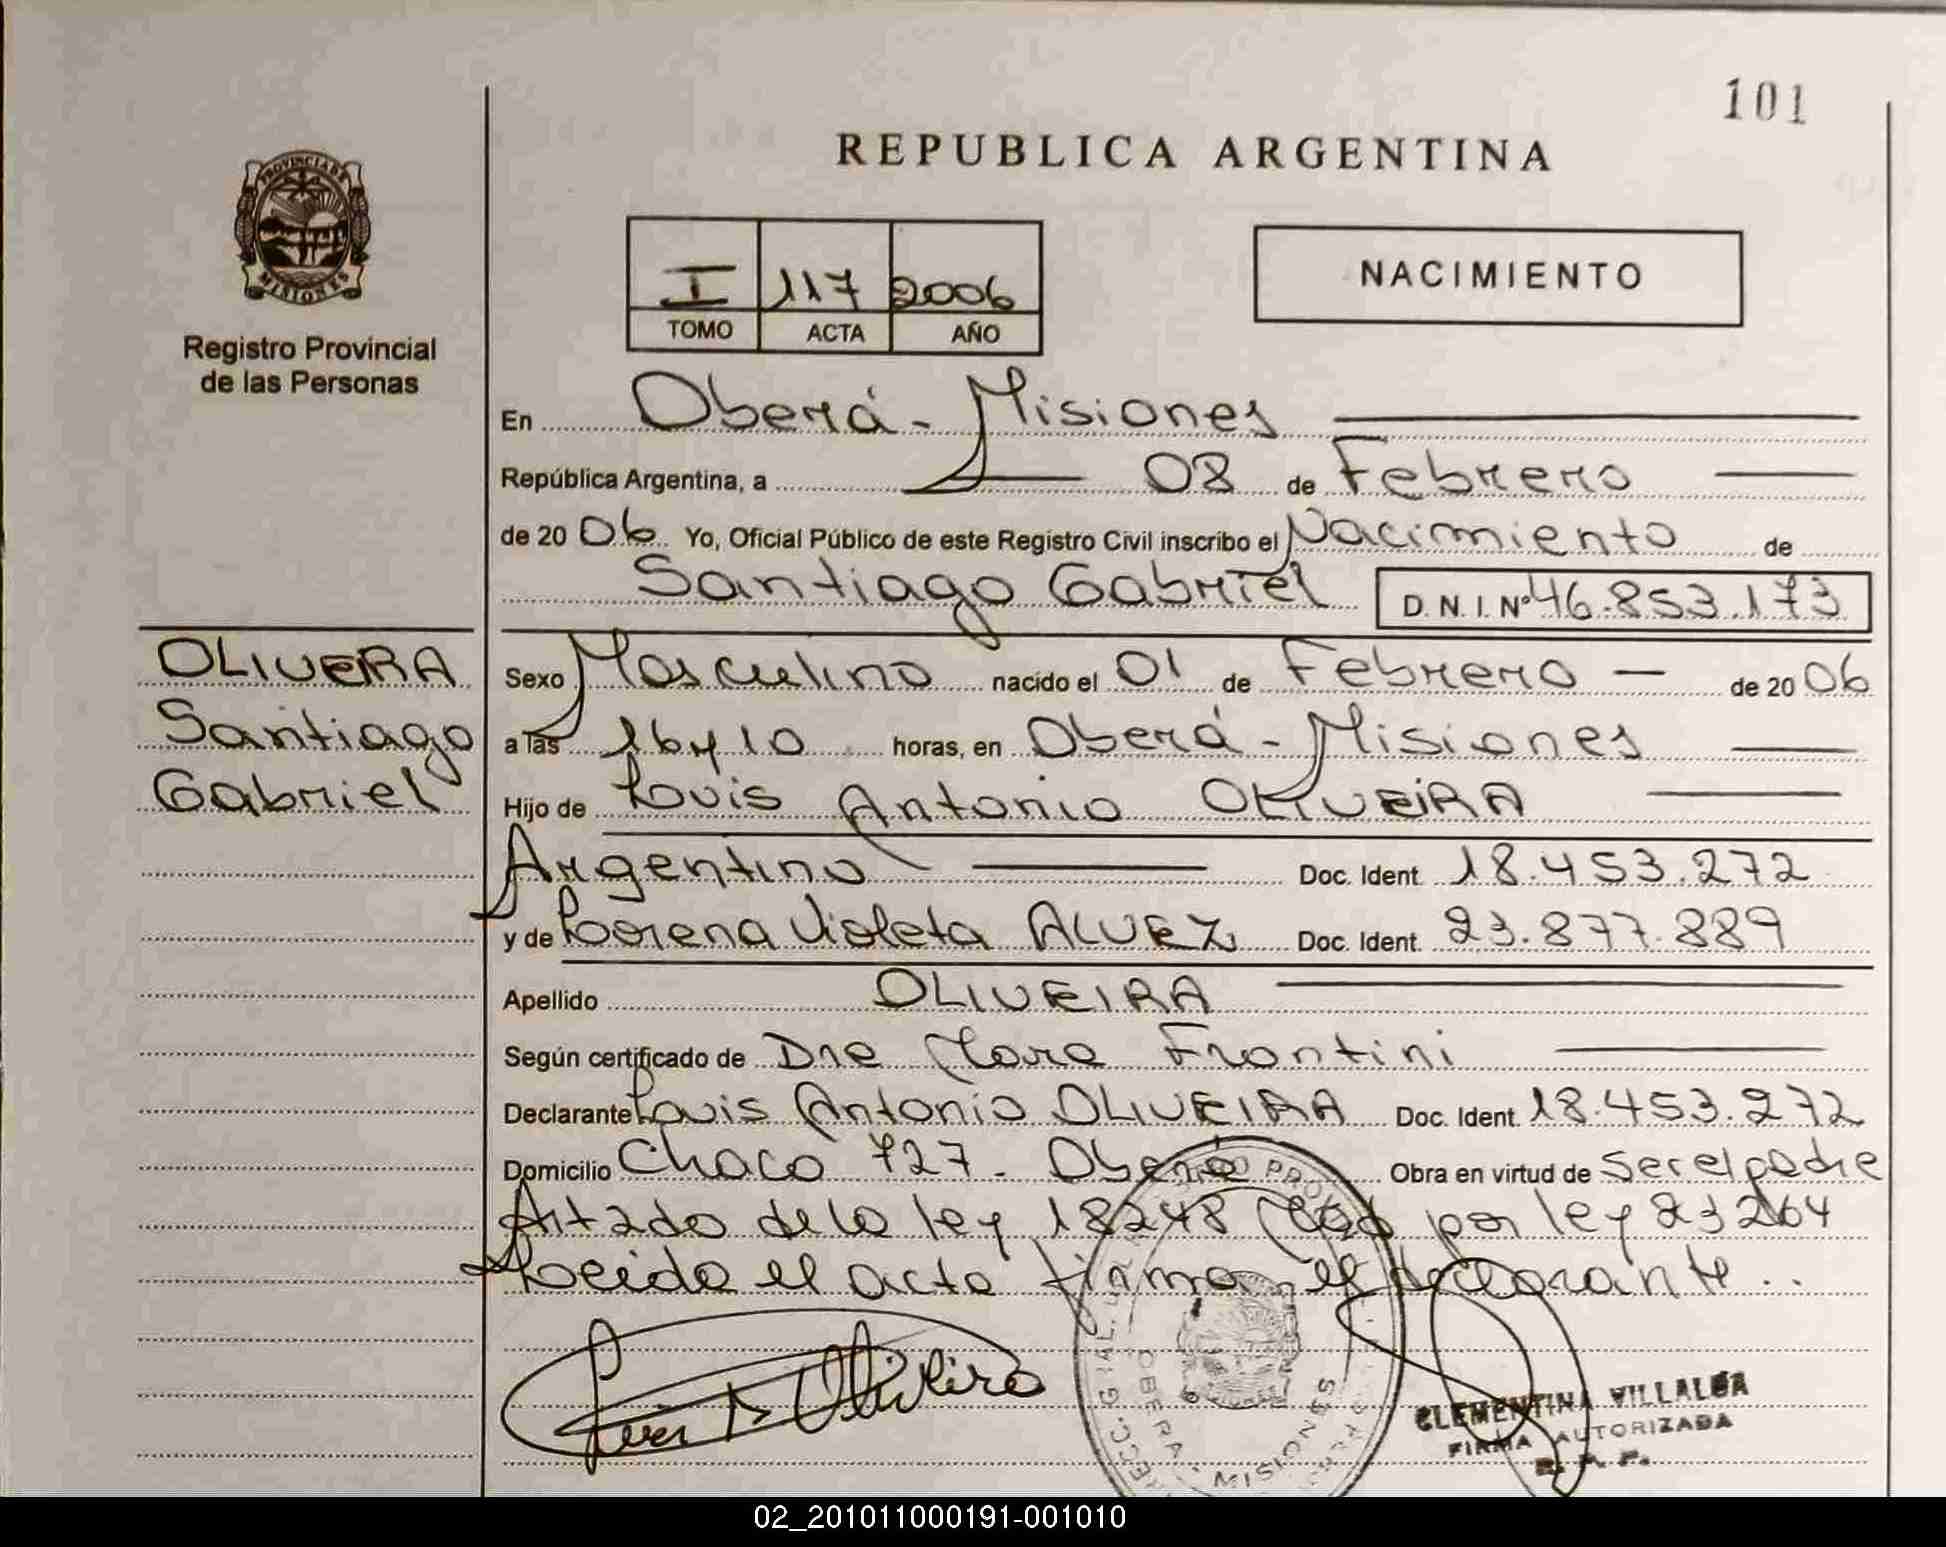 101
REPUBLICA ARGENTINA
PROVINCIA DE
MISIONES
Registro Provincial
de las Personas
I 117 2006
TOMO ACTA AÑO
NACIMIENTO
En Oberá - Misiones
República Argentina, a 08 de Febrero
de 20 06 Yo, Oficial Público de este Registro Civil inscribo el Nacimiento de
Santiago Gabriel D.N.I. Nº 46.853.173
OLIVERA
Santiago
Gabriel
Sexo Masculino nacido el 01 de Febrero de 20 06
a las 16 y 10 horas, en Oberá - Misiones
Hijo de Louis Antonio OLIVEiRA
Argentino Doc. Ident. 18.453.272
y de Lorena Violeta ALVEZ Doc. Ident. 23.877.889
Apellido OLIVEIRA
Según certificado de Dra Mara Frontini
Declarante Louis Antonio OLIVEIRA Doc. Ident. 18.453.272
Domicilio Chaco 727 - Oberá Obra en virtud de ser el padre
Art 2do de la ley 18248 por ley 23264
Leida el acta firma el declarante..
OBERA - MISIONES
CLEMENTINA VILLALBA
FIRMA AUTORIZADA
R. P. P.
02_201011000191-001010